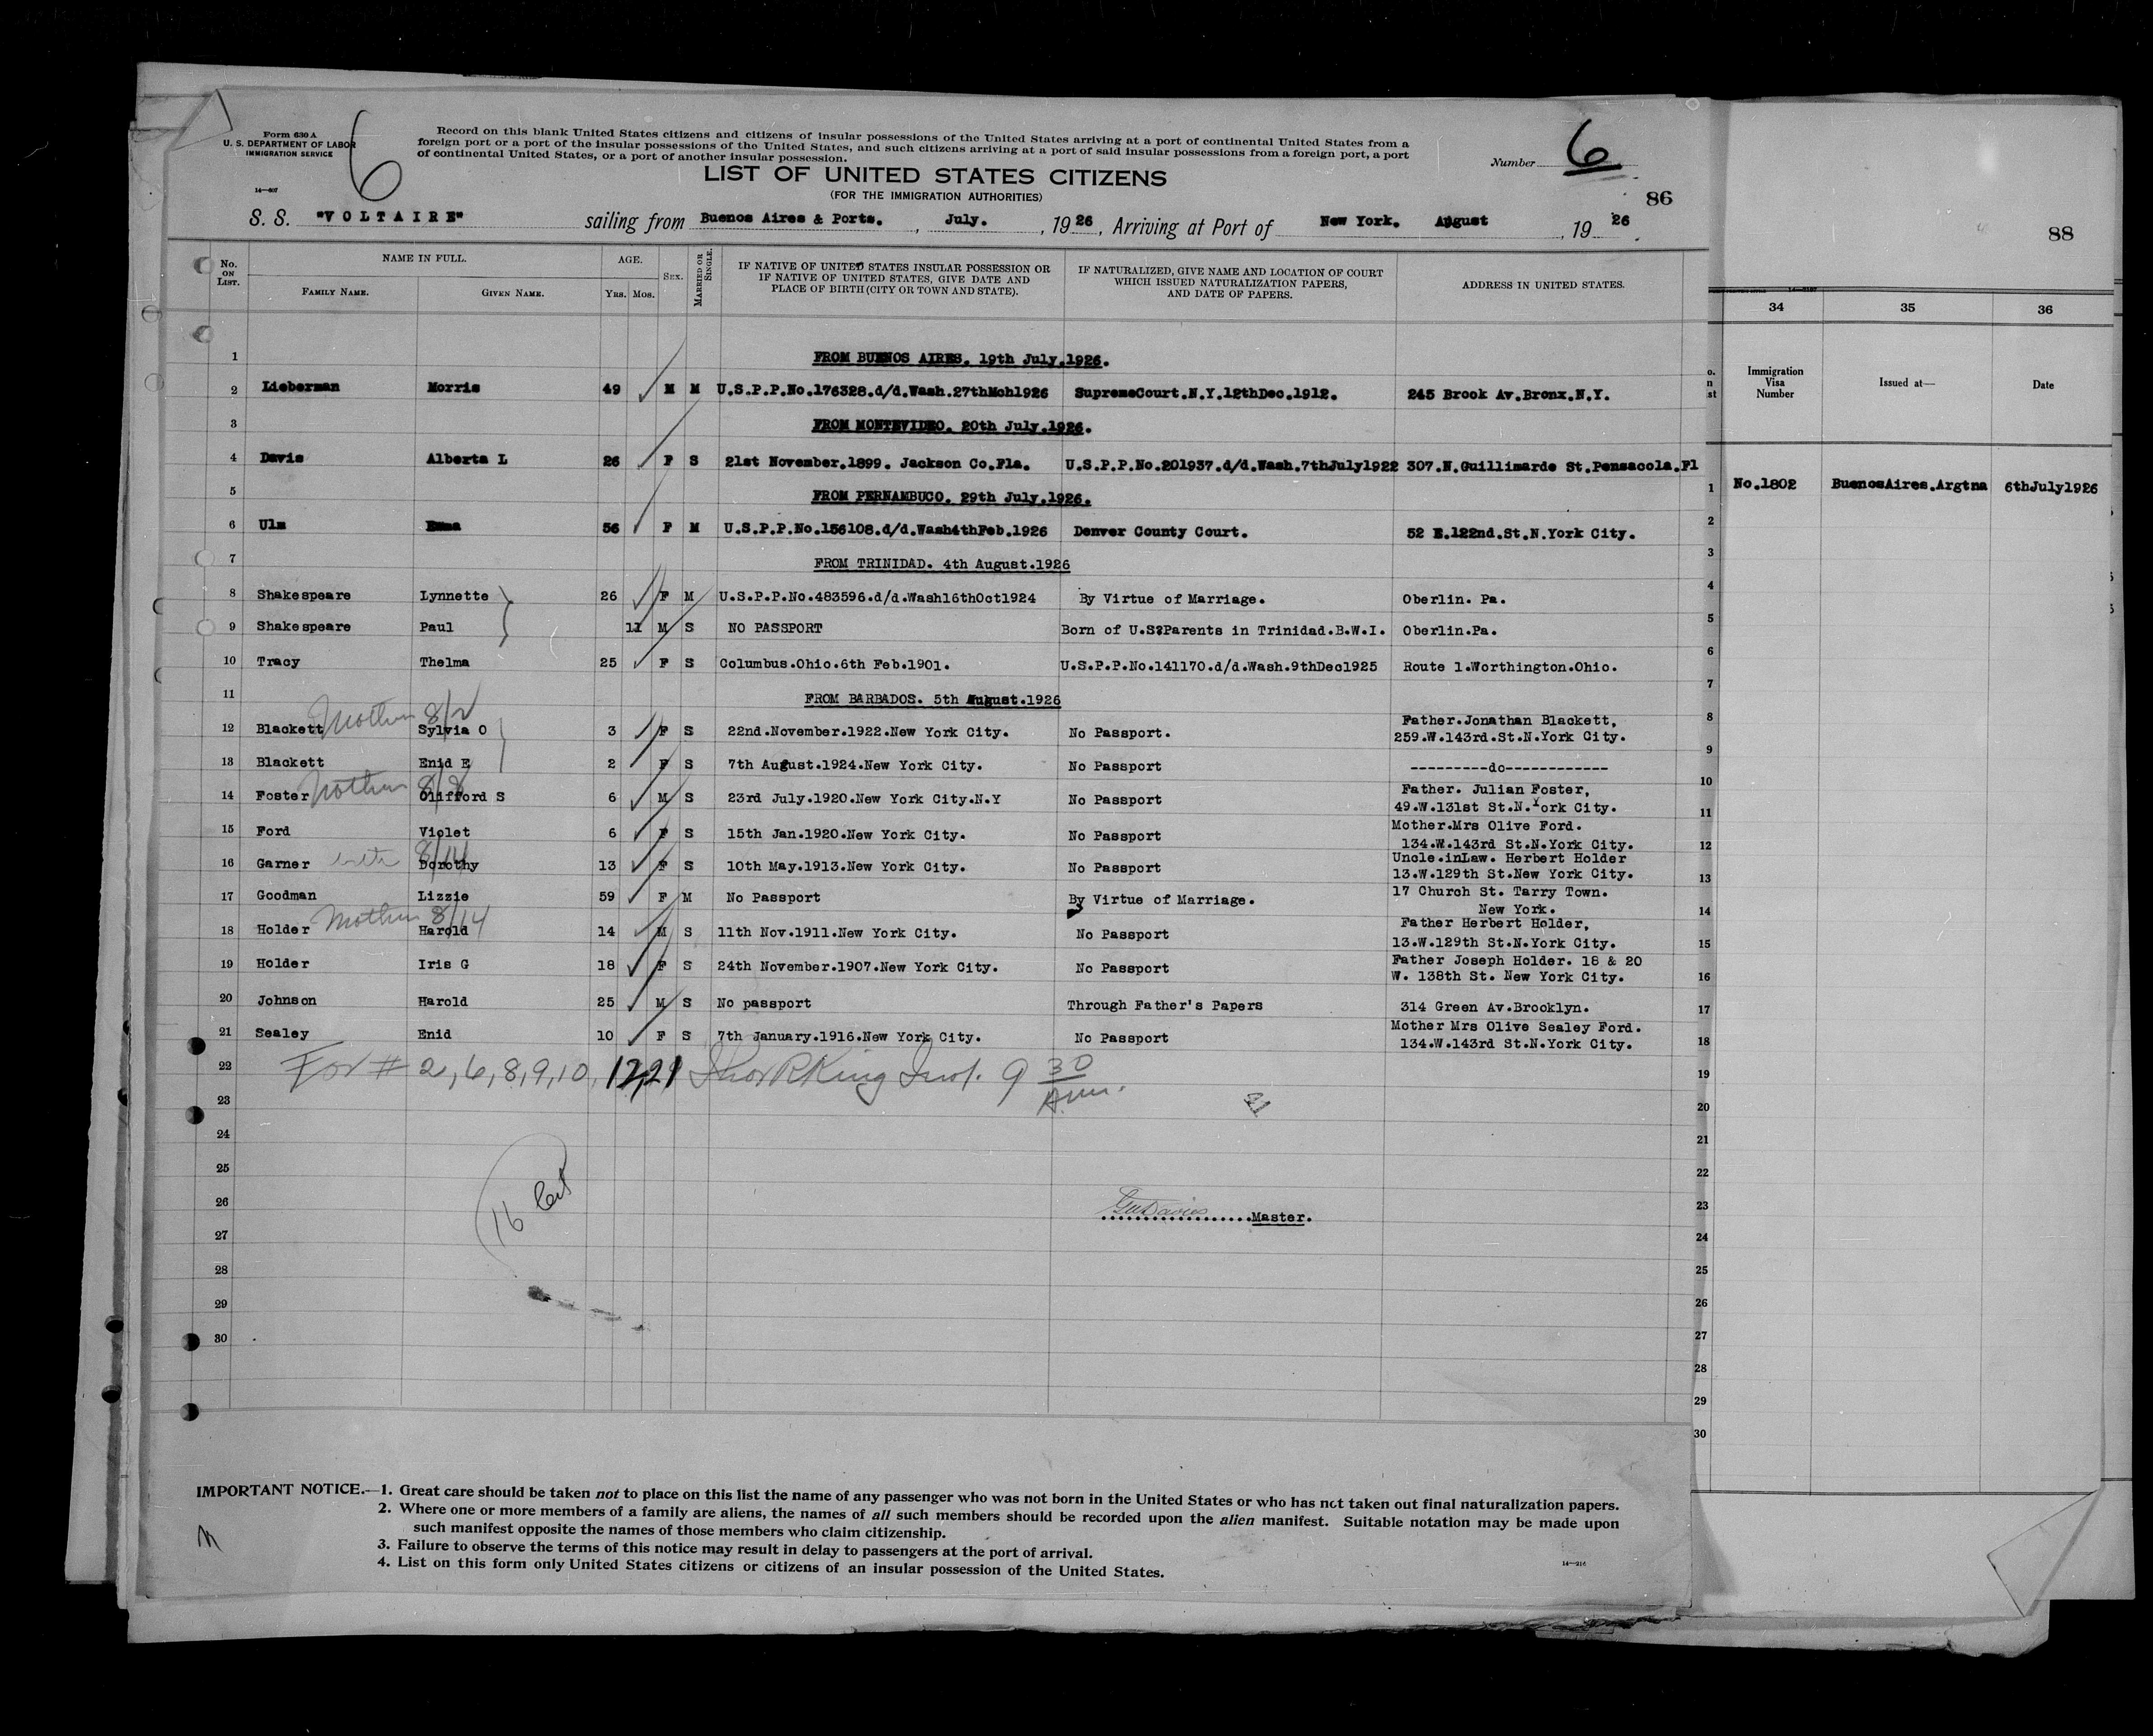 Form 630 A
U. S. DEPARTMENT OF LABOR
IMMIGRATION SERVICE
14—607
6
Record on this blank United States citizens and citizens of insular possessions of the United States arriving at a port of continental United States from a
foreign port or a port of the insular possessions of the United States, and such citizens arriving at a port of said insular possessions from a foreign port, a port
of continental United States, or a port of another insular possession.
Number 6
LIST OF UNITED STATES CITIZENS
(FOR THE IMMIGRATION AUTHORITIES)
86
S. S. "VOLTAIRE" sailing from Buenos Aires & Ports. , July. , 19 26 , Arriving at Port of New York. August , 19 26 .
No. ON LIST. NAME IN FULL. FAMILY NAME. GIVEN NAME. AGE. YRS. MOS. SEX. MARRIED OR SINGLE. IF NATIVE OF UNITED STATES INSULAR POSSESSION OR IF NATIVE OF UNITED STATES, GIVE DATE AND PLACE OF BIRTH (CITY OR TOWN AND STATE). IF NATURALIZED, GIVE NAME AND LOCATION OF COURT WHICH ISSUED NATURALIZATION PAPERS, AND DATE OF PAPERS. ADDRESS IN UNITED STATES.
1 FROM BUENOS AIRES. 19th July.1926.
2 Lieberman Morris 49 M M U.S.P.P.No.176328.d/d.Wash.27thMch1926 SupremeCourt.N.Y.12thDec.1912. 245 Brook Av.Bronx.N.Y.
3 FROM MONTEVIDEO. 20th July.1926.
4 Davis Alberta L 26 F S 21st November.1899. Jackson Co.Fla. U.S.P.P.No.201937.d/d.Wash.7thJuly1922 307.N.Guillimarde St.Pensacola.Fl
5 FROM PERNAMBUCO. 29th July.1926.
6 Ulm Emma 56 F M U.S.P.P.No.156108.d/d.Wash4thFeb.1926 Denver County Court. 52 E.122nd.St.N.York City.
7 FROM TRINIDAD. 4th August.1926
8 Shakespeare Lynnette 26 F M U.S.P.P.No.483596.d/d.Wash16thOct1924 By Virtue of Marriage. Oberlin. Pa.
9 Shakespeare Paul 11 M S NO PASSPORT Born of U.S?Parents in Trinidad.B.W.I. Oberlin.Pa.
10 Tracy Thelma 25 F S Columbus.Ohio.6th Feb.1901. U.S.P.P.No.141170.d/d.Wash.9thDec1925 Route 1.Worthington.Ohio.
11 FROM BARBADOS. 5th August.1926
Mother 8/2
12 Blackett Sylvia O 3 F S 22nd.November.1922.New York City. No Passport. Father.Jonathan Blackett,
259.W.143rd.St.N.York City.
13 Blackett Enid E 2 F S 7th August.1924.New York City. No Passport ---------do------------
Mother 8/8
14 Foster Clifford S 6 M S 23rd July.1920.New York City.N.Y No Passport Father. Julian Foster,
49.W.131st St.N.York City.
15 Ford Violet 6 F S 15th Jan.1920.New York City. No Passport Mother.Mrs Olive Ford.
134.W.143rd St.N.York City.
16 Garner 8/14 Dorothy 13 F S 10th May.1913.New York City. No Passport Uncle.inLaw. Herbert Holder
13.W.129th St.New York City.
17 Goodman Lizzie 59 F M No Passport By Virtue of Marriage. 17 Church St. Tarry Town.
New York.
Mother 8/14
18 Holder Harold 14 M S 11th Nov.1911.New York City. No Passport Father Herbert Holder,
13.W.129th St.N.York City.
19 Holder Iris G 18 F S 24th November.1907.New York City. No Passport Father Joseph Holder. 18 & 20
W. 138th St. New York City.
20 Johnson Harold 25 M S No passport Through Father's Papers 314 Green Av.Brooklyn.
21 Sealey Enid 10 F S 7th January.1916.New York City. No Passport Mother Mrs Olive Sealey Ford.
134.W.143rd St.N.York City.
22 For # 2,6,8,9,10, 17,21 King 9 30
A.m.
23
24
25
26 Master.
16
27
28
29
30
IMPORTANT NOTICE.—1. Great care should be taken not to place on this list the name of any passenger who was not born in the United States or who has not taken out final naturalization papers.
2. Where one or more members of a family are aliens, the names of all such members should be recorded upon the alien manifest. Suitable notation may be made upon
such manifest opposite the names of those members who claim citizenship.
3. Failure to observe the terms of this notice may result in delay to passengers at the port of arrival.
4. List on this form only United States citizens or citizens of an insular possession of the United States.
14—216
88
34 35 36
Immigration Visa Number Issued at— Date
1 No.1802 BuenosAires.Argtna 6thJuly1926
2
3
4
5
6
7
8
9
10
11
12
13
14
15
16
17
18
19
20
21
22
23
24
25
26
27
28
29
30